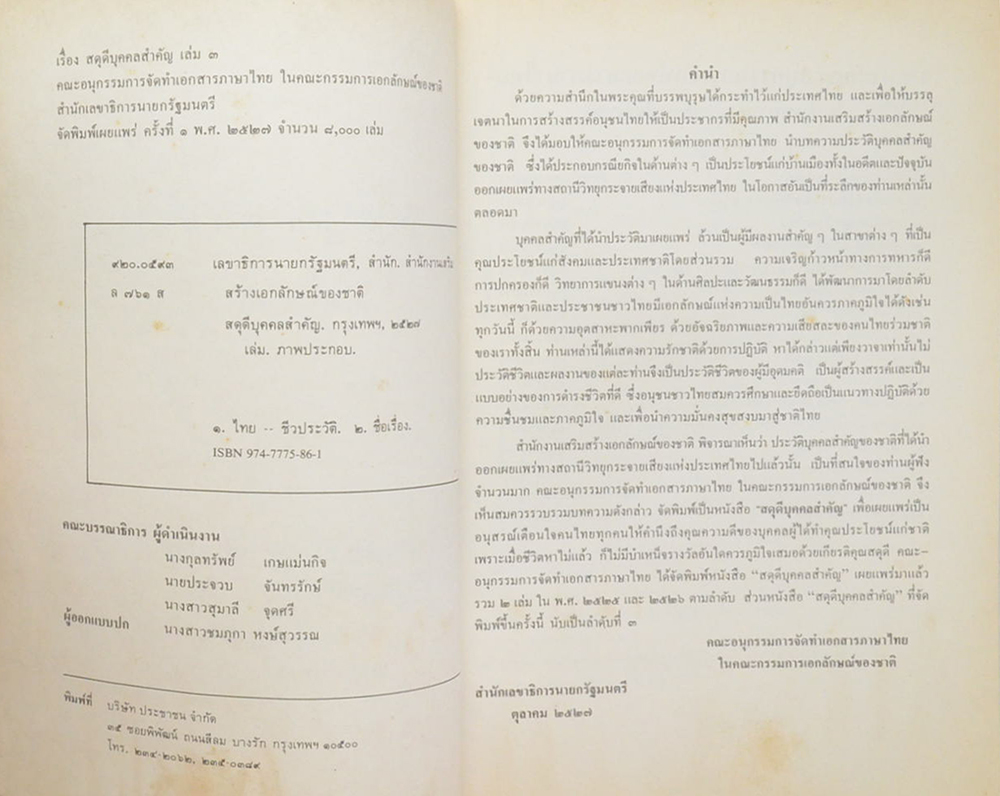 เรื่อง สดุดีบุคคลสำคัญ เล่ม ๓
คณะอนุกรรมการจัดทำเอกสารภาษาไทย ในคณะกรรมการเอกลักษณ์ของชาติ
สำนักเลขาธิการนายกรัฐมนตรี
จัดพิมพ์เผยแพร่ ครั้งที่ ๑ พ.ศ. ๒๕๒๗ จำนวน ๘,๐๐๐ เล่ม
๙๒๐.๐๕๙๓ เลขาธิการนายกรัฐมนตรี, สำนัก. สำนักงานเสริม
ล ๗๖๑ ส สร้างเอกลักษณ์ของชาติ
สดุดีบุคคลสำคัญ. กรุงเทพฯ, ๒๕๒๗
เล่ม. ภาพประกอบ.
๑. ไทย -- ชีวประวัติ. ๒. ชื่อเรื่อง.
ISBN 974-7775-86-1
คณะบรรณาธิการ ผู้ดำเนินงาน
นางกุลทรัพย์ เกษแม่นกิจ
นายประจวบ จันทรรักษ์
นางสาวสุมาลี จุดศรี
ผู้ออกแบบปก นางสาวชมภูกา หงษ์สุวรรณ
พิมพ์ที่ บริษัท ประชาชน จำกัด
๓๕ ซอยพิพัฒน์ ถนนสีลม บางรัก กรุงเทพฯ ๑๐๕๐๐
โทร. ๒๓๔-๒๐๖๒, ๒๓๕-๐๓๔๙
คำนำ
ด้วยความสำนึกในพระคุณที่บรรพบุรุษได้กระทำไว้แก่ประเทศไทย และเพื่อให้บรรลุ
เจตนาในการสร้างสรรค์อนุชนไทยให้เป็นประชากรที่มีคุณภาพ สำนักงานเสริมสร้างเอกลักษณ์
ของชาติ จึงได้มอบให้คณะอนุกรรมการจัดทำเอกสารภาษาไทย นำบทความประวัติบุคคลสำคัญ
ของชาติ ซึ่งได้ประกอบกรณียกิจในด้านต่าง ๆ เป็นประโยชน์แก่บ้านเมืองทั้งในอดีตและปัจจุบัน
ออกเผยแพร่ทางสถานีวิทยุกระจายเสียงแห่งประเทศไทย ในโอกาสอันเป็นที่ระลึกของท่านเหล่านั้น
ตลอดมา
บุคคลสำคัญที่ได้นำประวัติมาเผยแพร่ ล้วนเป็นผู้มีผลงานสำคัญ ๆ ในสาขาต่าง ๆ ที่เป็น
คุณประโยชน์แก่สังคมและประเทศชาติโดยส่วนรวม ความเจริญก้าวหน้าทางการทหารก็ดี
การปกครองก็ดี วิทยาการแขนงต่าง ๆ ในด้านศิลปะและวัฒนธรรมก็ดี ได้พัฒนาการมาโดยลำดับ
ประเทศชาติและประชาชนชาวไทยมีเอกลักษณ์แห่งความเป็นไทยอันควรภาคภูมิใจได้ดังเช่น
ทุกวันนี้ ก็ด้วยความอุตสาหะพากเพียร ด้วยอัจฉริยภาพและความเสียสละของคนไทยร่วมชาติ
ของเราทั้งสิ้น ท่านเหล่านี้ได้แสดงความรักชาติด้วยการปฏิบัติ หาได้กล่าวแต่เพียงวาจาเท่านั้นไม่
ประวัติชีวิตและผลงานของแต่ละท่านจึงเป็นประวัติชีวิตของผู้มีอุดมคติ เป็นผู้สร้างสรรค์และเป็น
แบบอย่างของการดำรงชีวิตที่ดี ซึ่งอนุชนชาวไทยสมควรศึกษาและยึดถือเป็นแนวทางปฏิบัติด้วย
ความชื่นชมและภาคภูมิใจ และเพื่อนำความมั่นคงสุขสงบมาสู่ชาติไทย
สำนักงานเสริมสร้างเอกลักษณ์ของชาติ พิจารณาเห็นว่า ประวัติบุคคลสำคัญของชาติที่ได้นำ
ออกเผยแพร่ทางสถานีวิทยุกระจายเสียงแห่งประเทศไทยไปแล้วนั้น เป็นที่สนใจของท่านผู้ฟัง
จำนวนมาก คณะอนุกรรมการจัดทำเอกสารภาษาไทย ในคณะกรรมการเอกลักษณ์ของชาติ จึง
เห็นสมควรรวบรวมบทความดังกล่าว จัดพิมพ์เป็นหนังสือ "สดุดีบุคคลสำคัญ" เพื่อเผยแพร่เป็น
อนุสรณ์เตือนใจคนไทยทุกคนให้คำนึงถึงคุณความดีของบุคคลผู้ได้ทำคุณประโยชน์แก่ชาติ
เพราะเมื่อชีวิตหาไม่แล้ว ก็ไม่มีบำเหน็จรางวัลอันใดควรภูมิใจเสมอด้วยเกียรติคุณสดุดี คณะ-
อนุกรรมการจัดทำเอกสารภาษาไทย ได้จัดพิมพ์หนังสือ "สดุดีบุคคลสำคัญ" เผยแพร่มาแล้ว
รวม ๒ เล่ม ใน พ.ศ. ๒๕๒๕ และ ๒๕๒๖ ตามลำดับ ส่วนหนังสือ "สดุดีบุคคลสำคัญ" ที่จัด
พิมพ์ขึ้นครั้งนี้ นับเป็นลำดับที่ ๓
คณะอนุกรรมการจัดทำเอกสารภาษาไทย
ในคณะกรรมการเอกลักษณ์ของชาติ
สำนักเลขาธิการนายกรัฐมนตรี
ตุลาคม ๒๕๒๗